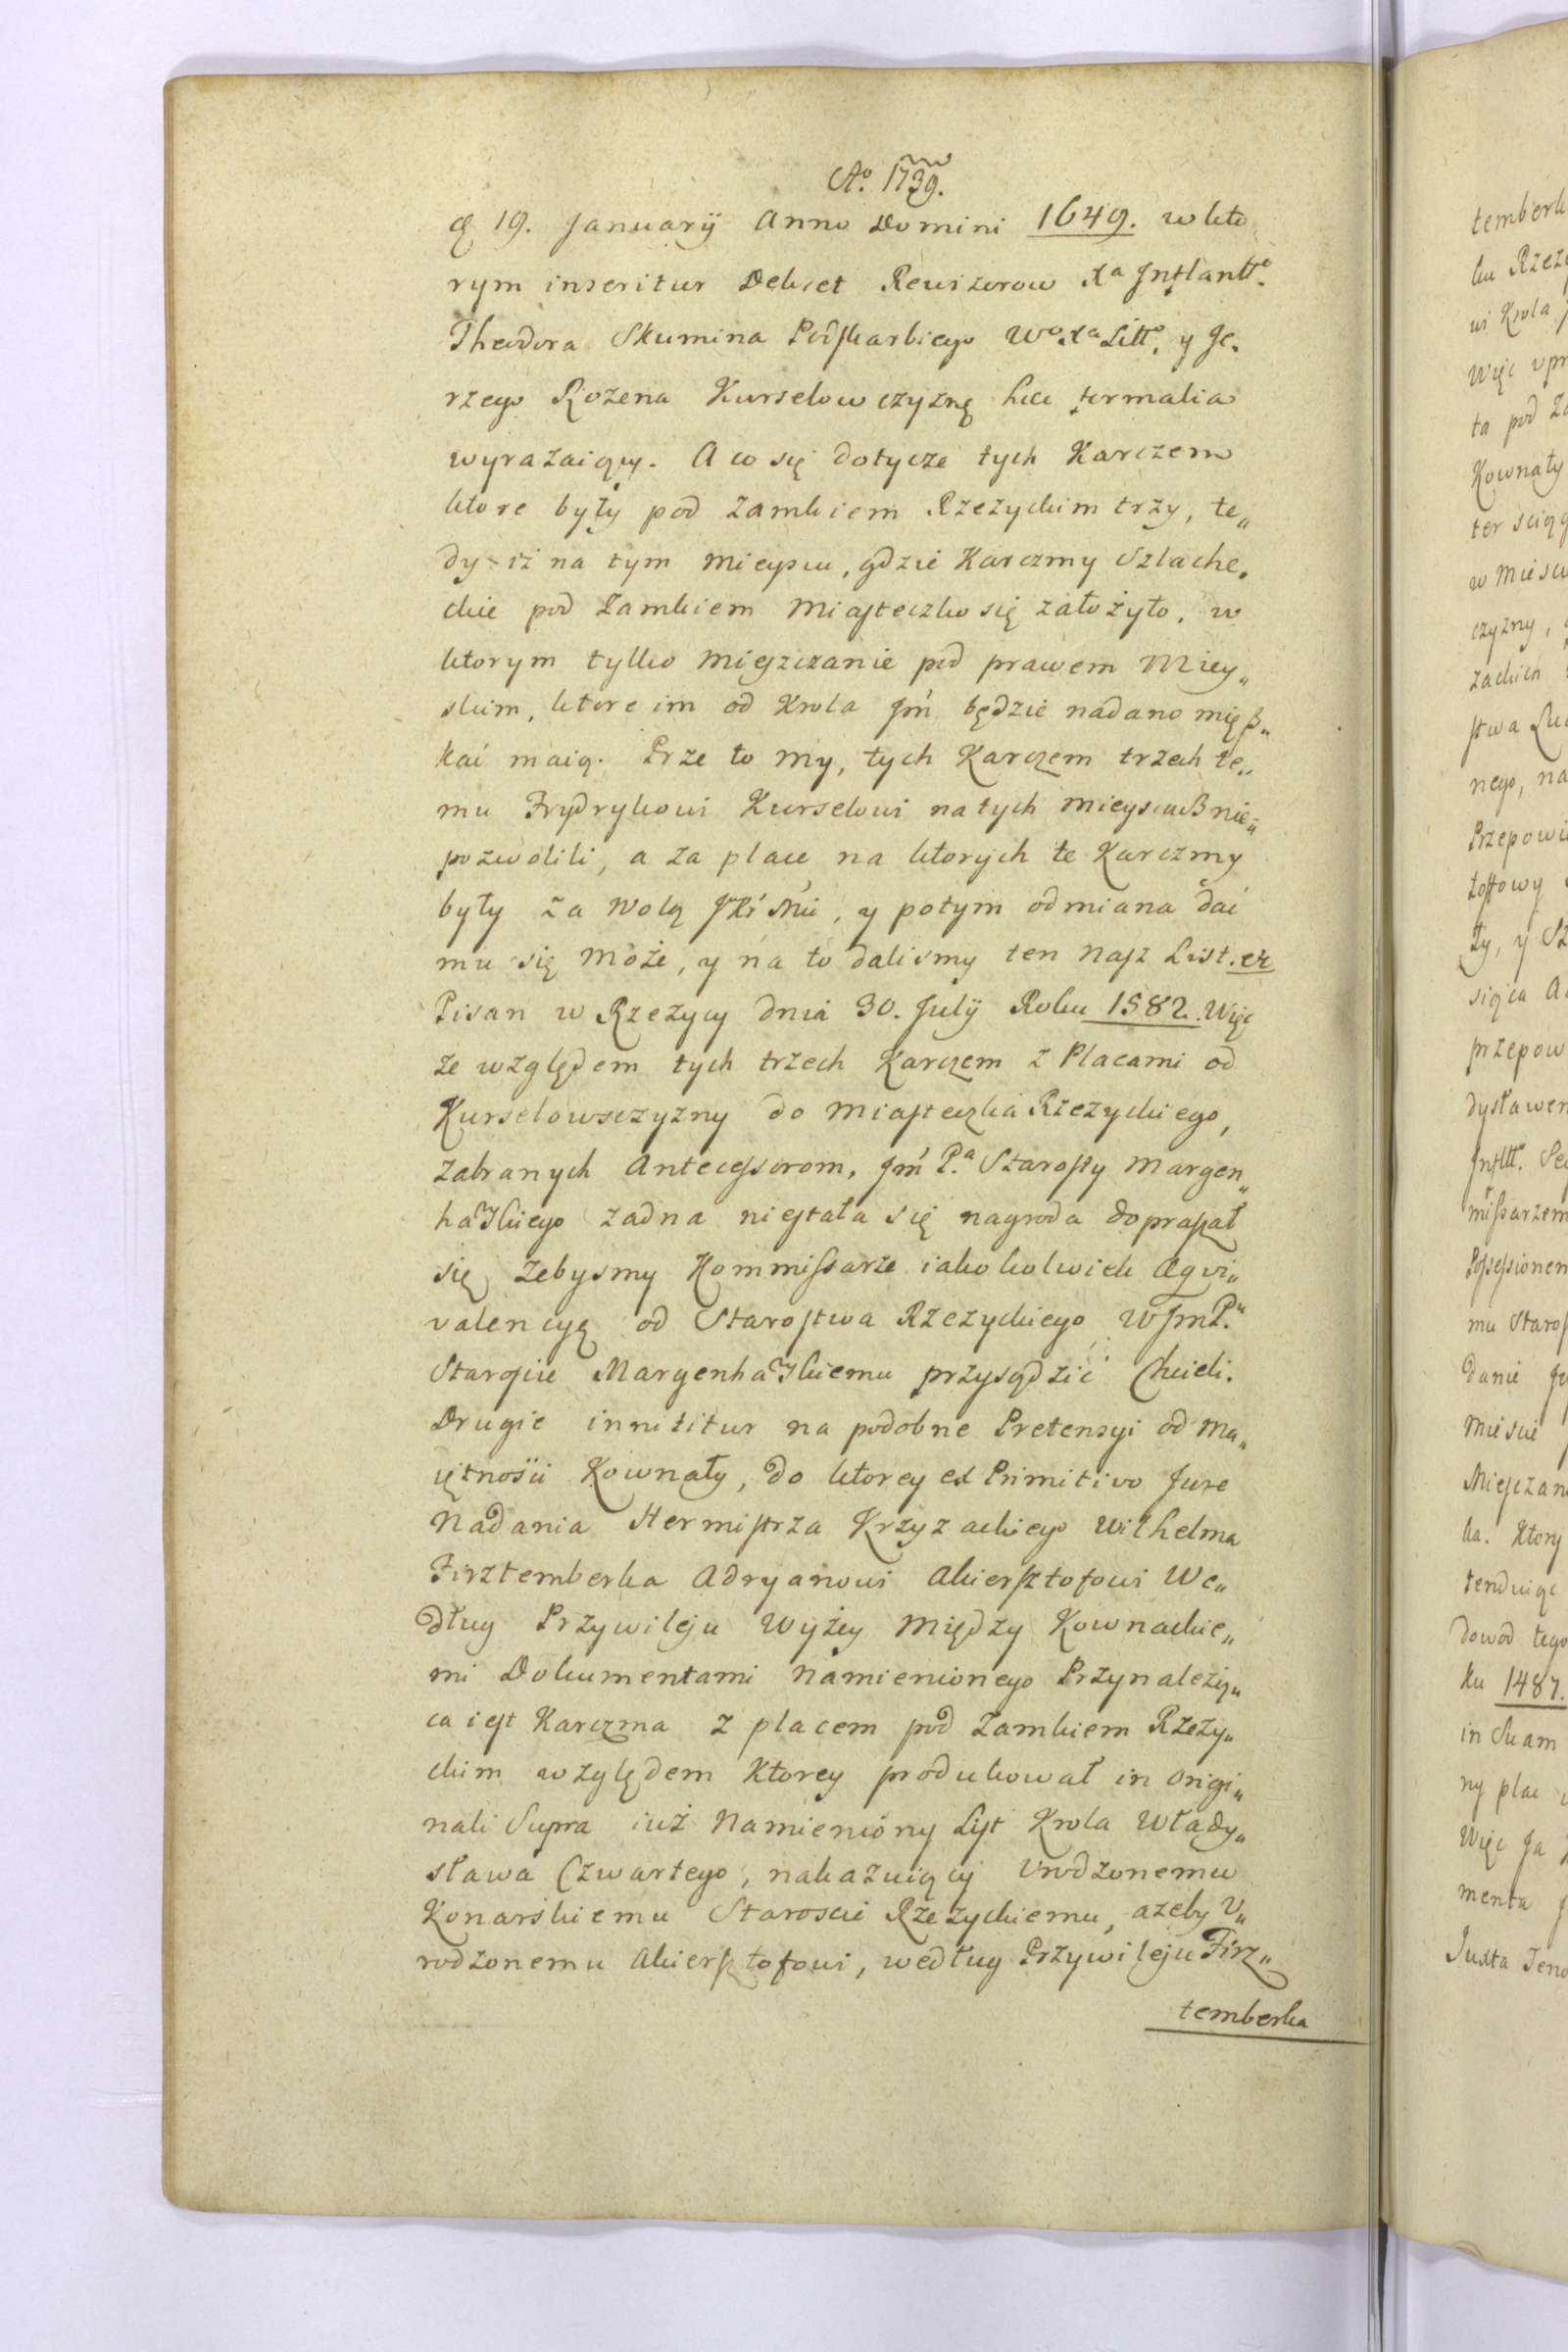 Aº. 1739.
& 19. Januarÿ Anno Domini 1649. w kto
rym inseritur Dekret Rewizorow Xª Jnflantt.
Theodora Skumina Podskarbiego Wº. Xª Littº. y Je.
rzego Rozena Kurselowczyznę hæc formalia
wyrazaiący. A co się dotycze tych Karczem
ktore były pod Zamkiem Rzezyckim trzy, te„
dy iż na tym mieyscu, gdzie Karczmy Szlache.
ckie pod Zamkiem Miasteczko się założyło, w
ktorym tylko Mieszczanie pod prawem Miey„
skim, ktore im od Krola Jm̃ będzie nadano mięß„
kać maią. Prze to my, tych Karczem trzech te„
mu Frydrykowi Kurselowi na tych mieyscach nie„
pozwolili, a za place na ktorych te Karczmy
były za wolą y potym odmiana dać
mu się może, y na to dalismy ten nasz List. etc
Pisan w Rzezycy dnia 30. Julÿ Roku 1582. Więc
ze względem tych trzech Karczem z Placami od
Kurselowsczyzny do Miasteczka Rzezyckiego,
zabranych Antecessorom, Jm̃ P.ª Starosty Margen„
hawskiego zadna niestała się nagroda dopraszał
się zebysmy Kommissarze iakokolwiek Æqvi„
valencyą od Starostwa Rzezyckiego WJmP.ᵘ
Starosie Margenhawskiemu przysądzić Chcieli.
Drugie innititur na podobne Pretensyi od Ma„
iętnośći Kownaty, do ktorey ex Primitivo Jure
Nadania Hermistrza Krzyzackiego Wilhelma
Firztemberka Adryanowi Akiersztofowi We„
dług Przywileju Wyżey Między Kownackie„
mi Dokumentami namienionego Przynależy„
ca iest Karczma z placem pod Zamkiem Rzezy„
ckim względem Ktorey produkował in origi„
nali Supra iuż Namieniony List Krola Włady„
sława Czwartego, nakazuiący Vrodzonemu
Konarskiemu Staroscie Rzezyckiemu, azeby V„
rodzonemu Akiersztofowi, według Przywileju Firz„
temberka
temberk
ku Rzez
wi Krola
Więc
ta pod
Kownaty
ter sciąg
w Miesc
czyzny,
zackich
stwa
nego, na
Przepowi
ty, y
siąca
przepow
dysława
missarzem
Possessionem
mu Staros
danie
Miescie
Mieszczan
ka. Ktory
tenduiąc
dowod tego
ku 1487.
in Suam
ny plac
Więc Ja
menta
Juxta Teno